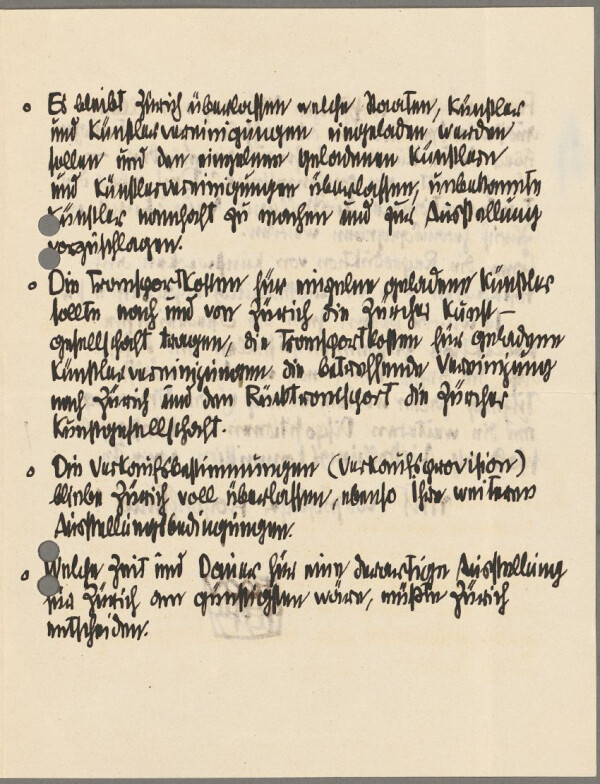 o Es bleibt Zürich überlassen welche Staaten, Künstler
und Künstlervereinigungen eingeladen werden
sollen und den einzelnen geladenen Künstlern
und Künstlervereinigungen überlassen, unbekannte
Künstler namhaft zu machen und zur Ausstellung
vorzuschlagen.
o Die Transportkosten für einzelne geladene Künstler
sollte nach und von Zürich die Zürcher Kunst-
gesellschaft tragen, die Transportkosten für geladene
Künstlervereinigungen die betreffende Vereinigung
nach Zürich und den Rücktransport die Zürcher
Kunstgesellschaft.
o Die Verkaufsbestimmungen (Verkaufsprovision)
bliebe Zürich voll überlassen, ebenso Ihre weiteren
Ausstellungsbedingungen.
o Welche Zeit und Dauer für eine derartige Ausstellung
für Zürich am günstigsten wäre, müßte Zürich
entscheiden.